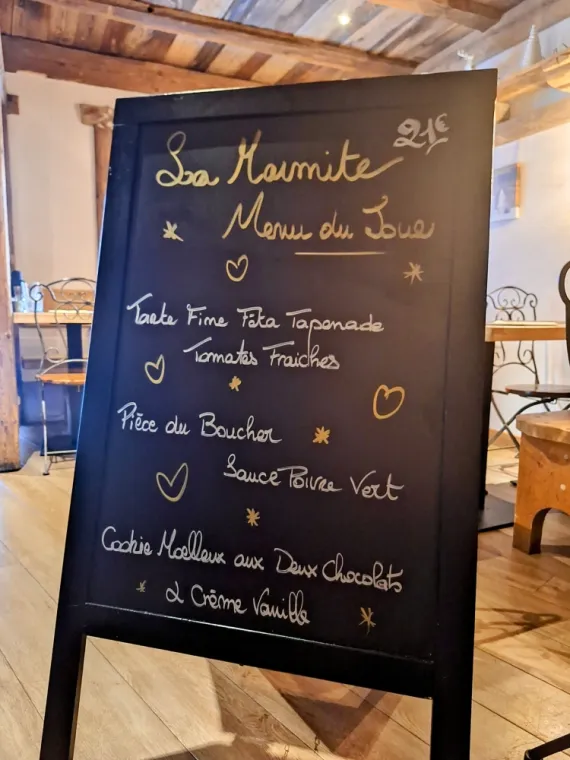 La Marmite 21€
Menu du Jour
Tarte Fine Féta Tapenade
Tomates Fraiches
Pièce du Boucher
Sauce Poivre Vert
Cookie Moelleux aux Deux Chocolats
& Crème Vanille